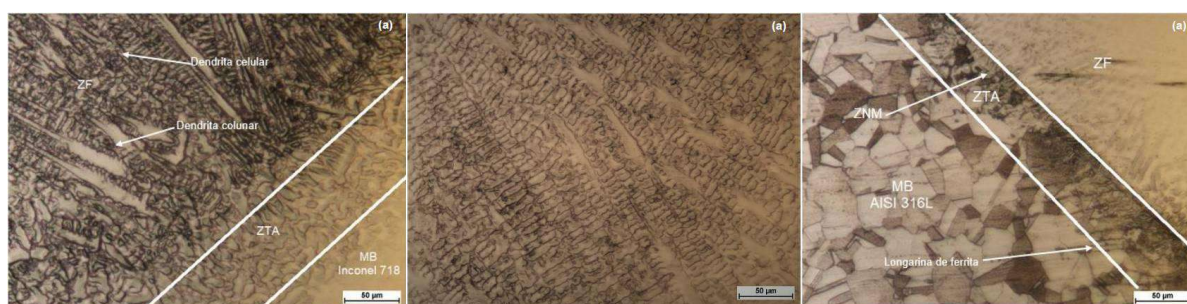 (a)
Dendrita celular
ZF
Dendrita colunar
ZTA
MB
Inconel 718
50 µm
(a)
50 µm
(a)
ZF
ZNM
ZTA
MB
AISI 316L
Longarina de ferrita
50 µm